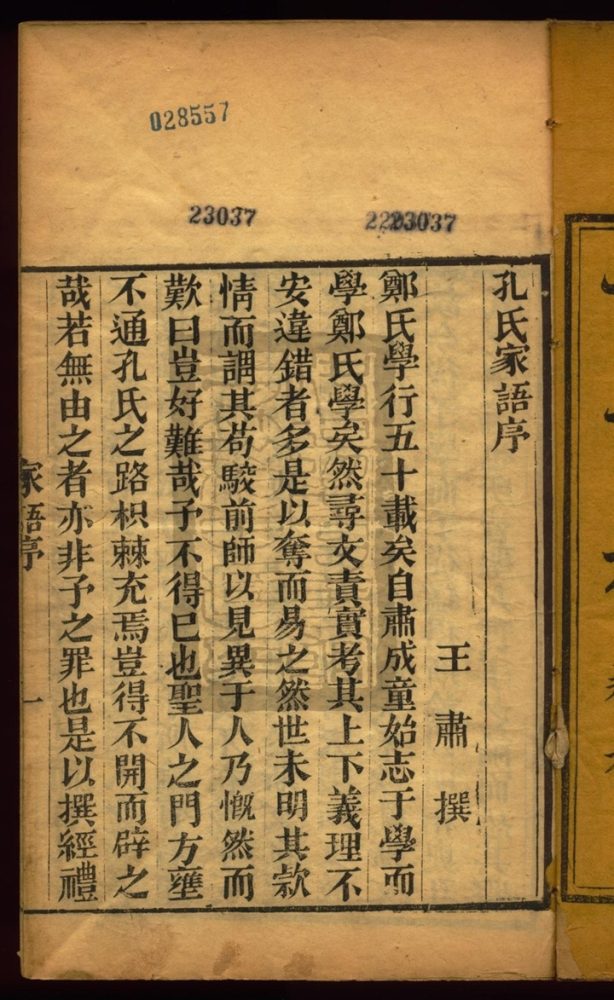 028557
23037
2223037
孔氏家語序
王肅撰
鄭氏學行五十載矣自肅成童始志于學而
學鄭氏學矣然尋文責實考其上下義理不
安違錯者多是以奪而易之然世未明其款
情而謂其苟駮前師以見異于人乃慨然而
歎曰豈好難哉予不得已也聖人之門方壅
不通孔氏之路枳棘充焉豈得不開而辟之
哉若無由之者亦非予之罪也是以撰經禮
家語序
一